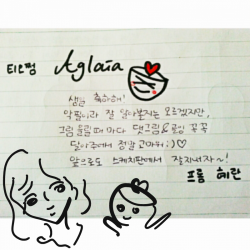 티므펌 Aglaia
생일 축하해!
악필이라 잘 알아볼지는 모르겠지만,
그림 올릴 때 마다 댓그림&공임 꼭꼭
달아줘서 정말 고마워 :) ♡
앞으로도 스케치판에서 잘지내자~!
프롬 혜란